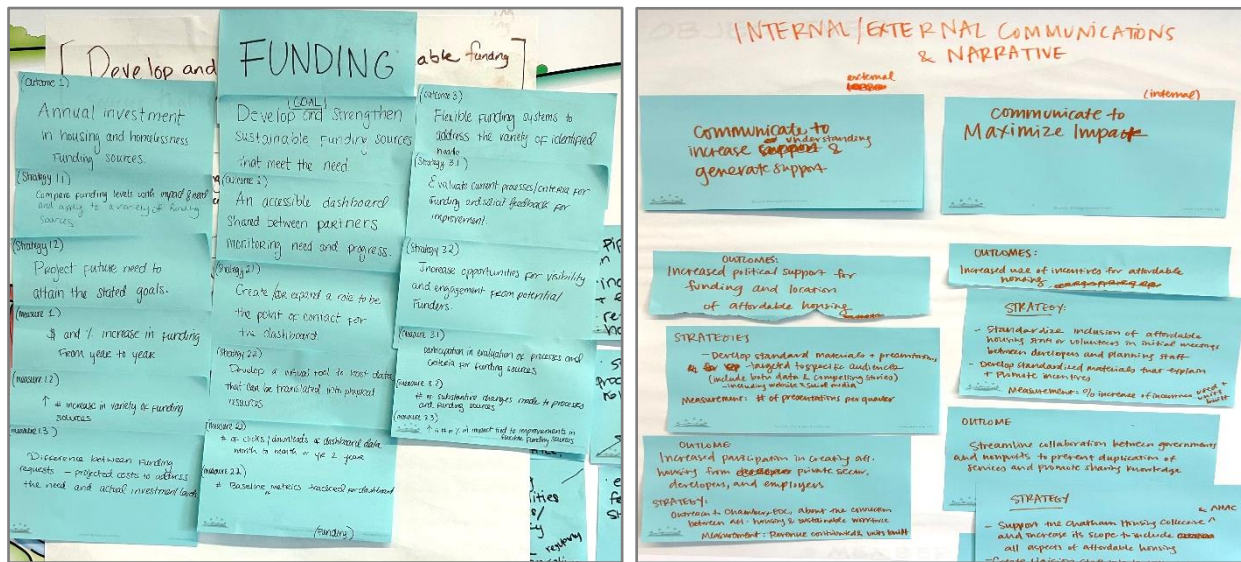 [ Develop and
able funding
FUNDING
(Outcome 1)
Annual investment
in housing and homelessness
Funding sources.
(Strategy 1.1)
Compare funding levels with impact & need
and apply to a variety of funding
sources
(Strategy 1.2)
Project future need to
attain the stated goals.
(measure 1.)
$ and % increase in funding
from year to year
(measure 1.2
↑ # increase in variety of funding
sources
measure 1.3
Difference between Funding
requests – projected costs to address
the need and actual investment levels
(GOAL)
Develop and strengthen
sustainable funding sources
that meet the need.
(Outcome 2
An accessible dashboard
shared between partners
monitoring need and progress.
(Strategy 2.1)
Create / expand a role to be
the point of contact for
the dashboard
(Strategy 2.2)
Develop a visual tool to host data
that can be translated into physical
resources
(Measure 2.1
# of clicks / downloads of dashboard data
month to month or yr 2 year
(measure 2.2
# Baseline metrics tracked for dashboard
(Funding)
(Outcome 3
Flexible funding systems to
address the variety of identified
needs
(Strategy 3.1)
Evaluate current processes/criteria for
Funding and solicit feedback for
improvement.
(Strategy 3.2
Increase opportunities for visibility
and engagement from potential
Funders.
(measure 3.1)
participation in evaluation of processes and
criteria for funding sources
(measure 3.2
# of substantive changes made to processes
and funding sources
(measure 3.3)
↑ in # or % of impact tied to improvements in
flexible funding sources
INTERNAL/EXTERNAL COMMUNICATIONS
& NARRATIVE
external
Communicate to
increase understanding &
generate support
(internal)
Communicate to
Maximize Impact
OUTCOMES:
Increased political support for
funding and location
of affordable housing
STRATEGIES
- Develop standard materials + presentations
targeted to specific audiences
(include both data & compelling stories)
- including website & social media
Measurement: # of presentations per quarter
OUTCOME
Increased participation in creating aff.
housing from private sector,
developers, and employers
STRATEGY:
Outreach to Chamber, EDC, about the connection
between aff. housing & sustainable workforce
Measurement: Revenue contributed & units built
OUTCOMES:
Increased use of incentives for affordable
housing
STRATEGY:
- Standardize inclusion of affordable
housing staff or volunteers in initial meetings
between developers and planning staff
- Develop standardized materials that explain
+ promote incentives
Measurement: % increase of incentives used +
units built
OUTCOME
Streamline collaboration between governments
and nonprofits to prevent duplication of
services and promote sharing knowledge
STRATEGY
AHAC
- Support the Chatham Housing Collective ^
and increase its scope to include
all aspects of affordable housing